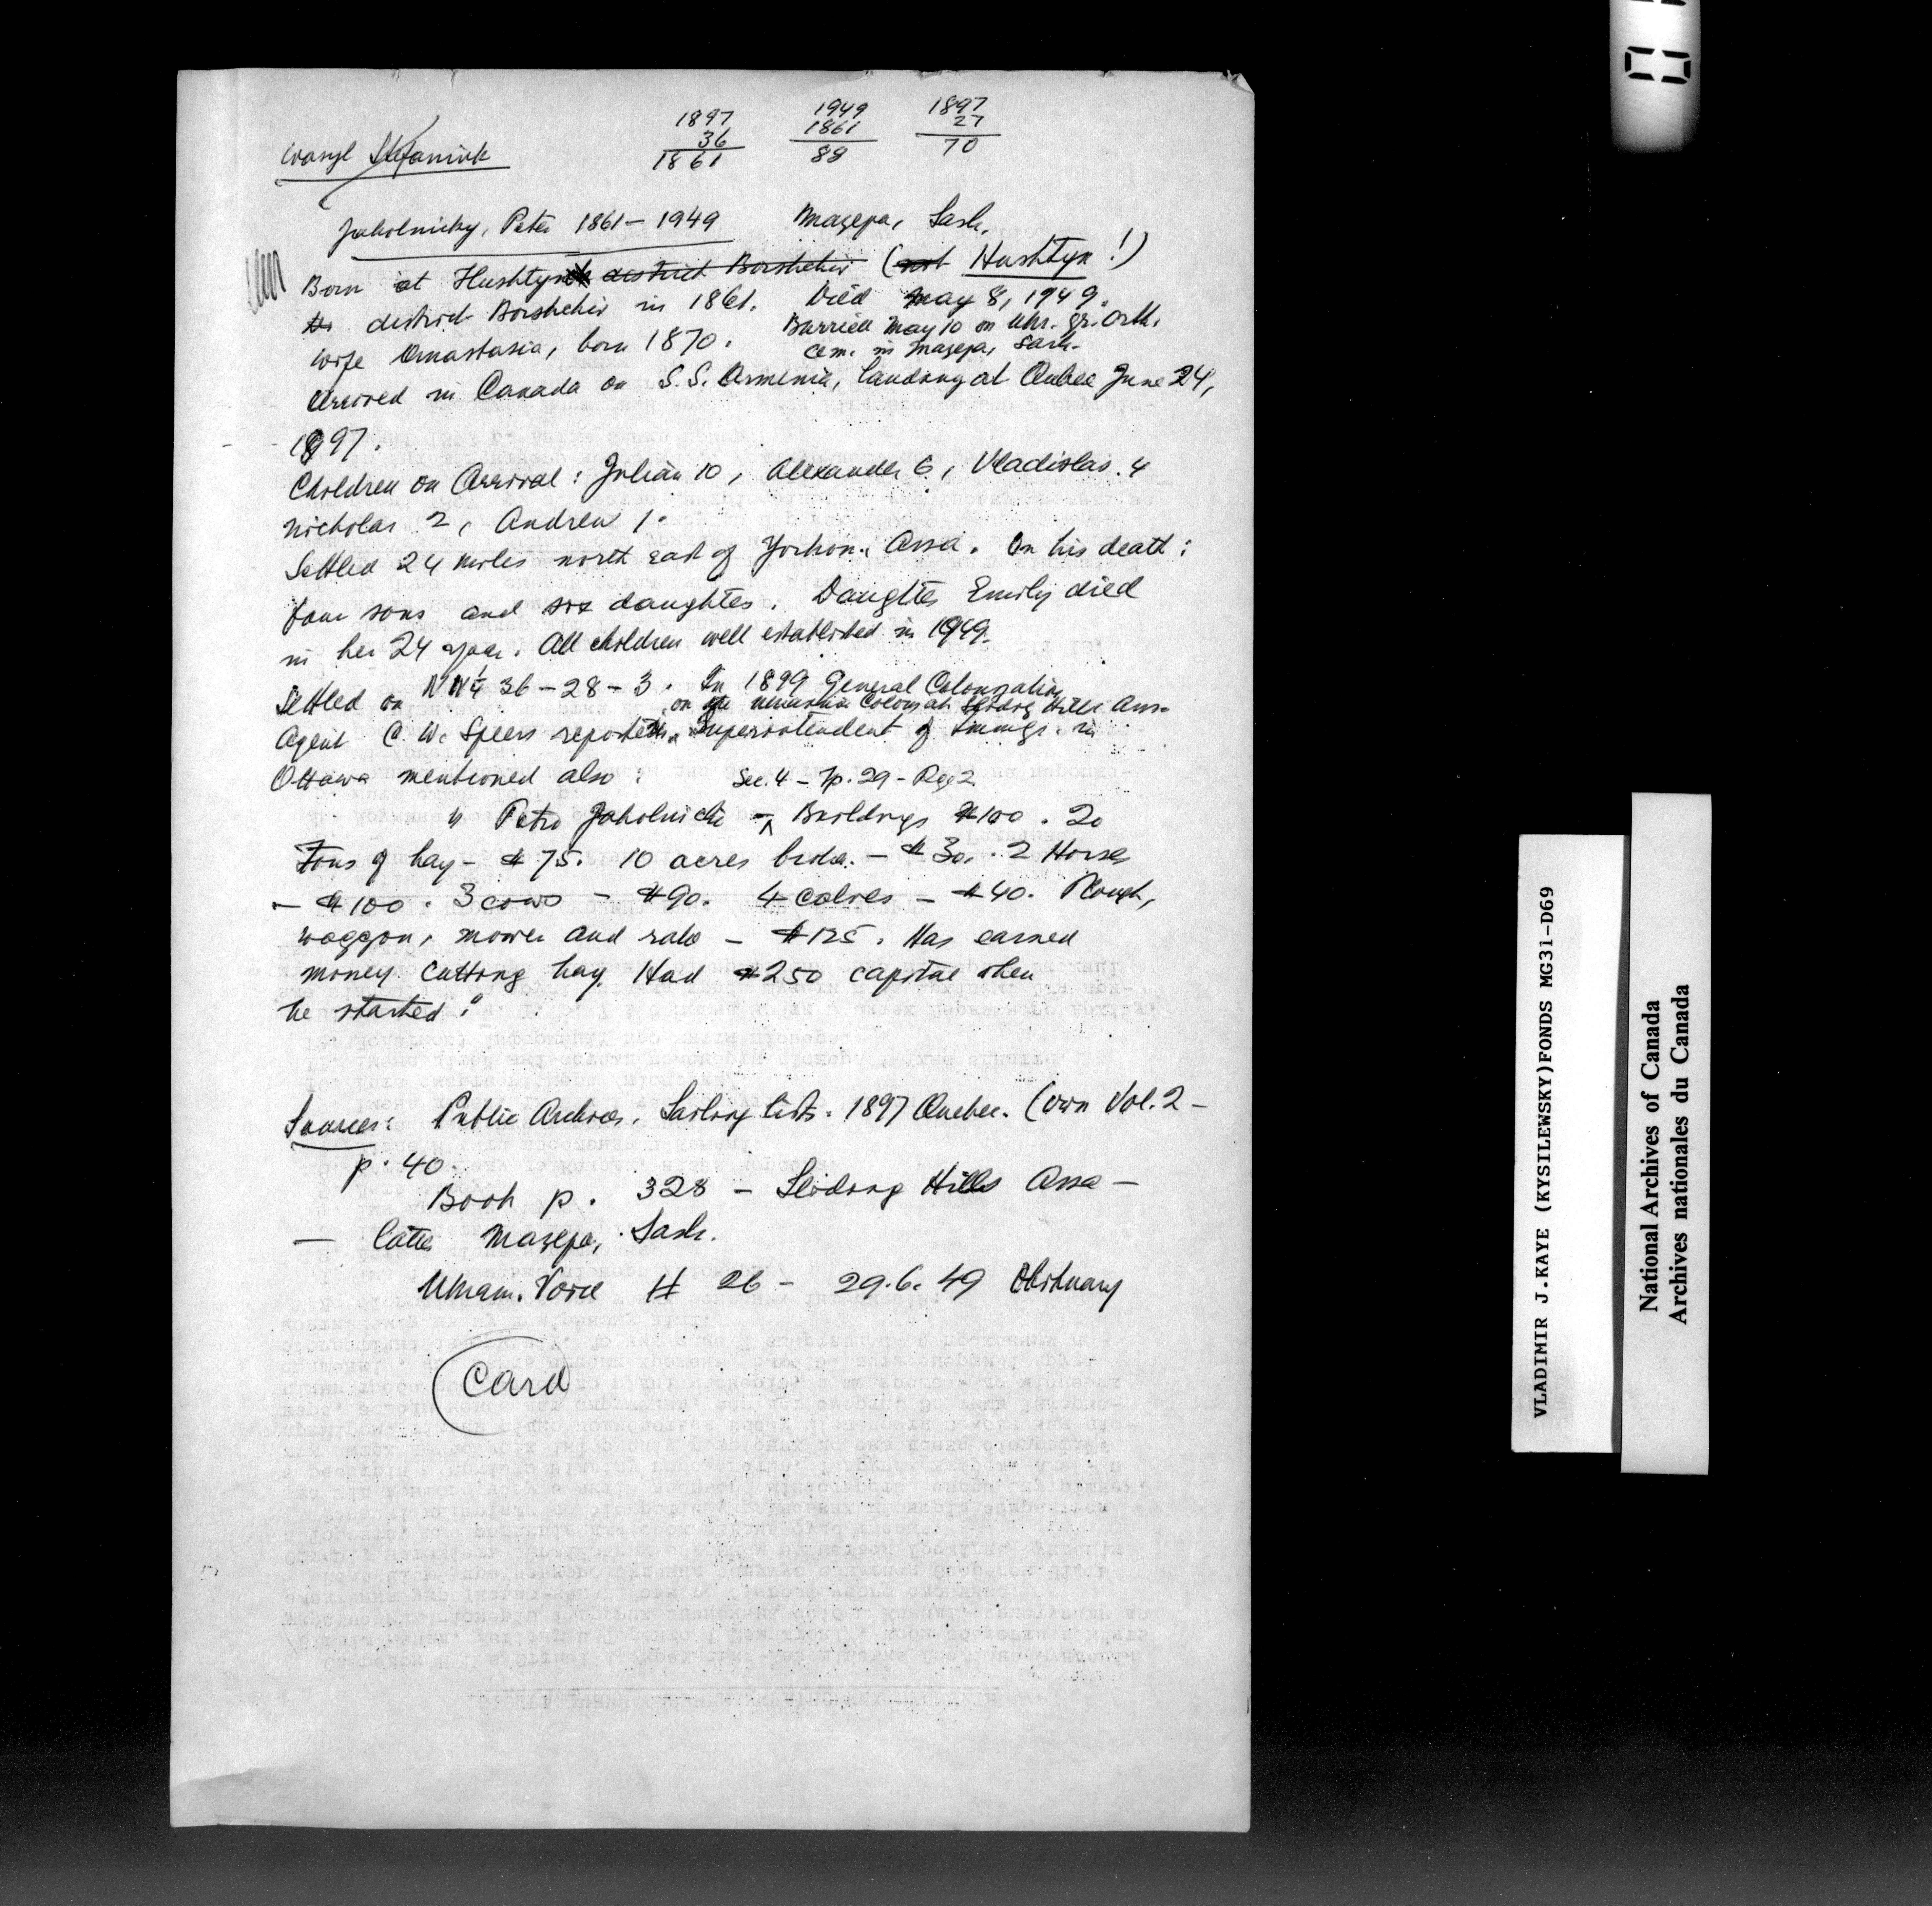 1897 1949 1897
36 1861 27
1861 88 70
Wasyl Stefaniuk
Jaholnicky, Peter 1861 – 1949 Mazepa, Sask.
Born at Hushtyn district Borshchiv (not Hushtyn!)
district Borshchiv in 1861. Died May 8, 1949.
Burried May 10 on Ukr. Gr. Orth.
wife Anastasia, born 1870. cem. in Mazepa, Sask.
Arrived in Canada on S.S. Armenia, landing at Quebec June 24,
1897.
Children on Arrival: Julian 10, Alexander 6, Vladislas. 4
Nicholas 2, Andrew 1.
Settled 24 miles north east of Yorkton, Assa. On his death:
four sons and six daughters. Daughter Emily died
in her 24 year. All children well established in 1949.
Settled on NW¼ 36 – 28 – 3. In 1899 General Colonization
on the Colony at Sliding Hills Assa
Agent C. W. Speers reported Superintendent of Immigr. in
Ottawa mentioned also: Sec. 4 – Tp. 29 – Rge 2.
" Petro Jaholnicki – Buildings $100. 20
Tons of hay – $75. 10 acres broke. – $30. 2 Horses
– $100. 3 cows – $90. 4 calves – $40. Plough,
waggon, mower and rake – $125. Has earned
money. Cutting hay. Had $250 capital when
he started."
Sources: Public Archives. Sailing lists. 1897 Quebec. (own Vol. 2 –
p. 40.
Book p. 328 – Sliding Hills Assa –
– later Mazepa, Sask.
Ukrain. Voice # 26 – 29.6.49 Obituary
Card
VLADIMIR J.KAYE (KYSILEWSKY)FONDS MG31-D69
National Archives of Canada
Archives nationales du Canada